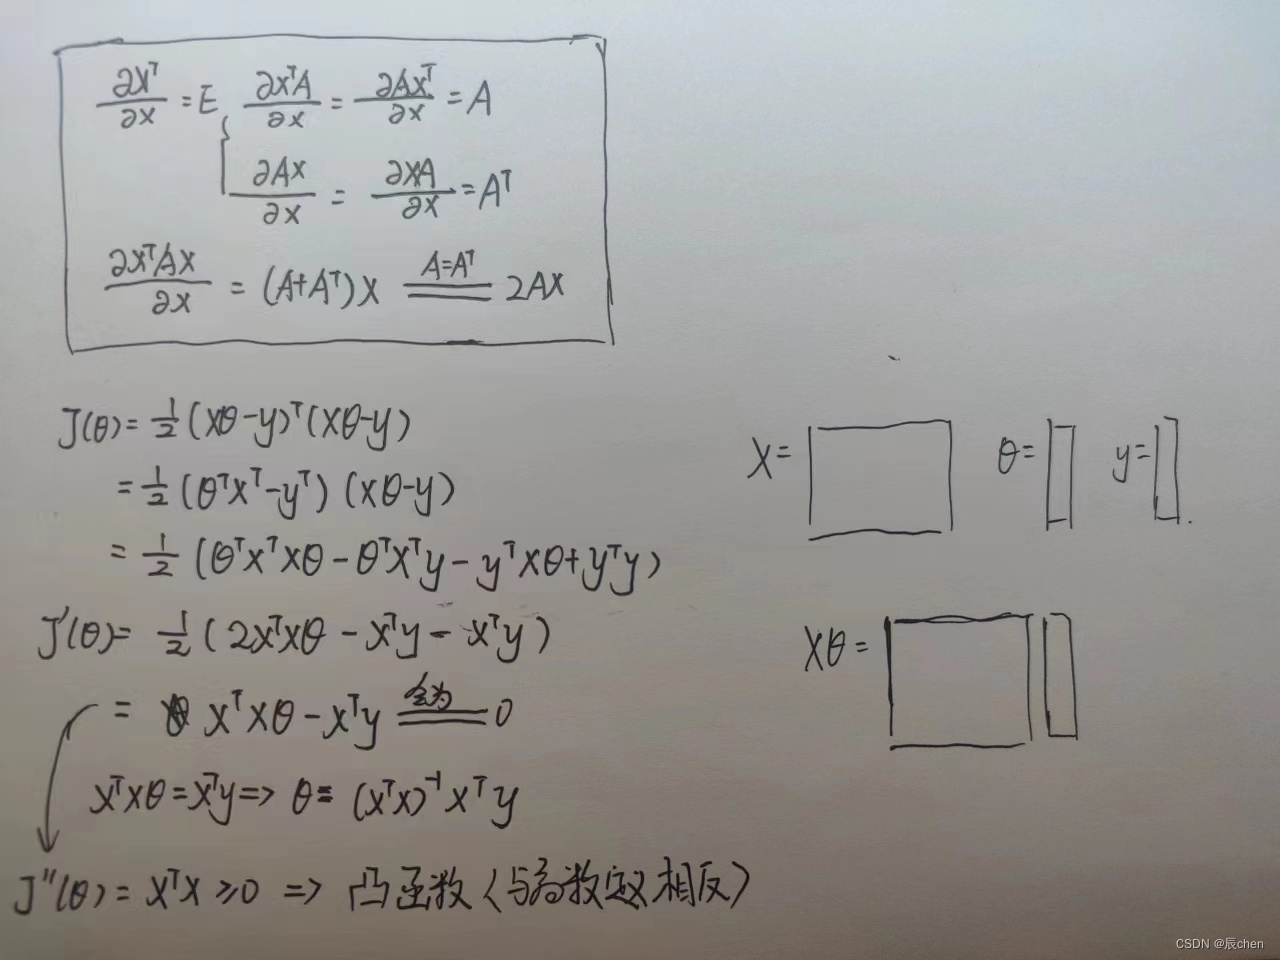 ∂X^T/∂x = E { ∂x^TA/∂x = ∂Ax^T/∂x = A
∂Ax/∂x = ∂xA/∂x = A^T
∂x^TAx/∂x = (A+A^T)x =(A=A^T)= 2Ax
J(θ) = 1/2 (Xθ-y)^T(Xθ-y)
= 1/2 (θ^TX^T-y^T) (Xθ-y)
= 1/2 (θ^TX^TXθ - θ^TX^Ty - y^TXθ + y^Ty)
J'(θ) = 1/2 (2X^TXθ - X^Ty - X^Ty)
= X^TXθ - X^Ty =(令为)= 0
X^TXθ = X^Ty => θ = (X^TX)^-1 X^Ty
J''(θ) = X^TX ≥ 0 => 凸函数 (与高数定义相反)
X = θ = y =
Xθ =
CSDN @辰chen